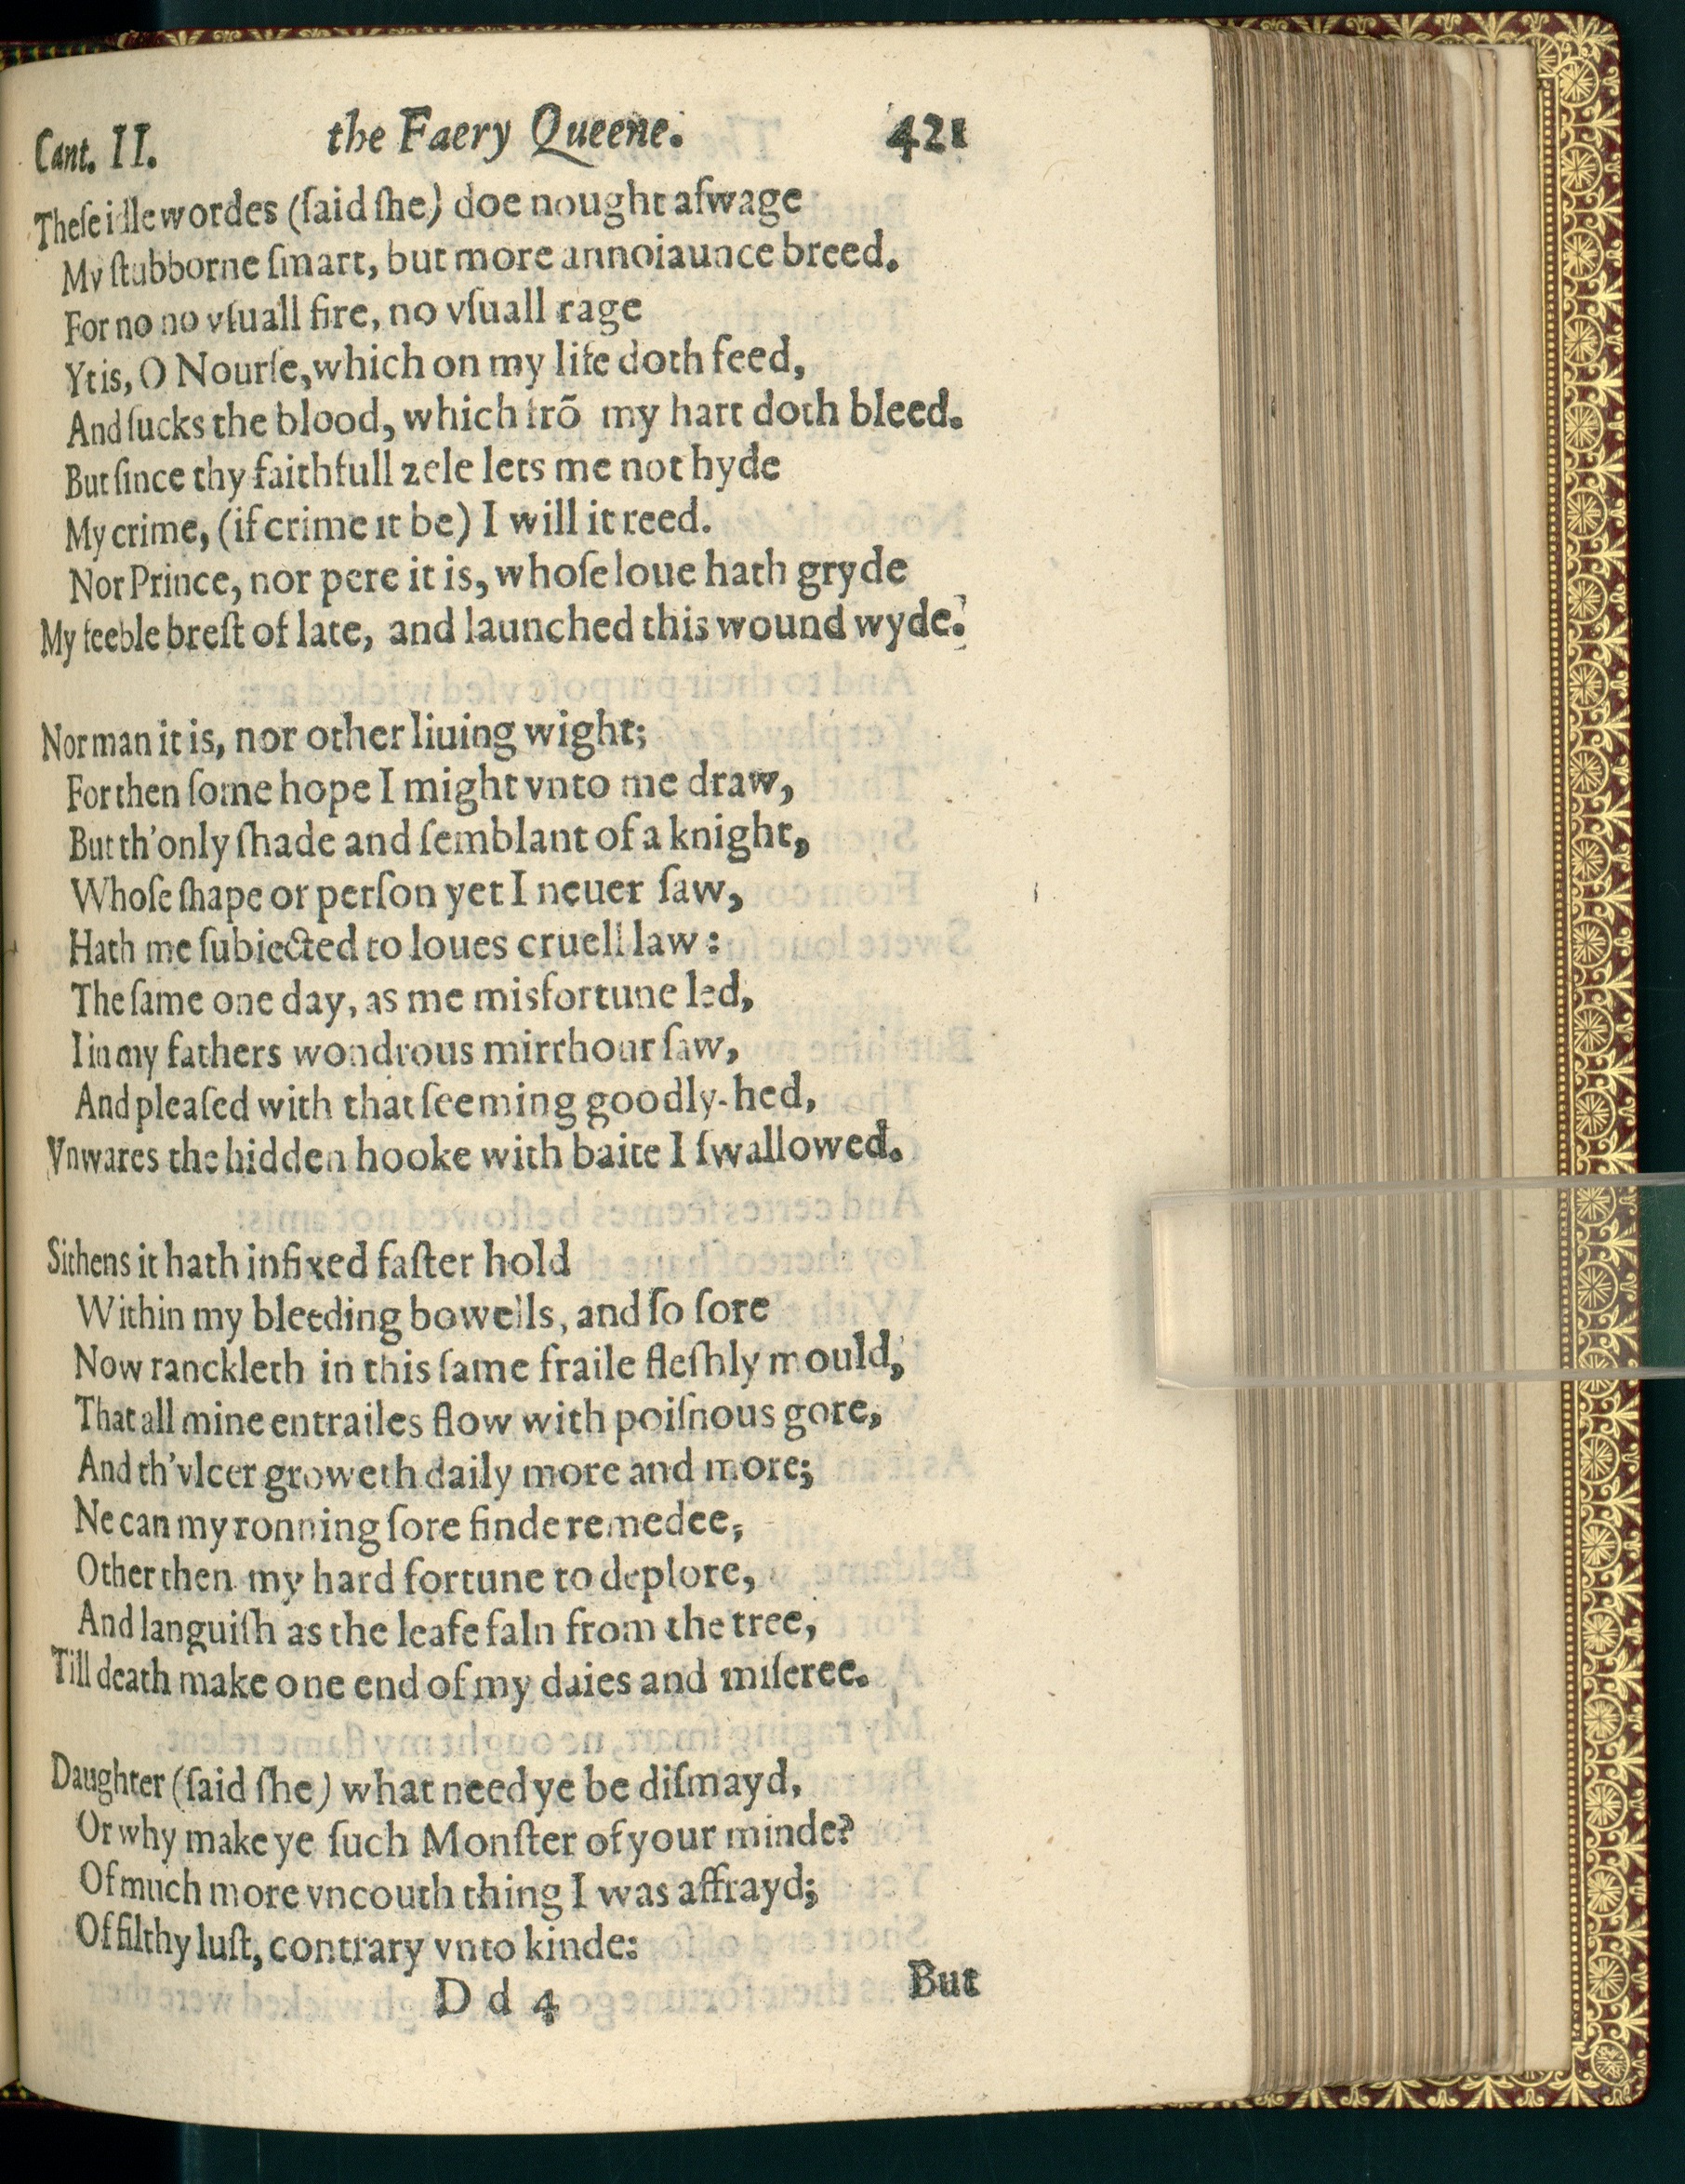 Cant. II. the Faery Queene. 421
Theſe idle wordes (ſaid ſhe) doe nought aſwage
My ſtubborne ſmart, but more annoiaunce breed.
For no no vſuall fire, no vſuall rage
Yt is, O Nourſe, which on my life doth feed,
And ſucks the blood, which frõ my hart doth bleed.
But ſince thy faithfull zele lets me not hyde
My crime, (if crime it be) I will it reed.
Nor Prince, nor pere it is, whoſe loue hath gryde
My feeble breſt of late, and launched this wound wyde.
Nor man it is, nor other liuing wight;
For then ſome hope I might vnto me draw,
But th'only ſhade and ſemblant of a knight,
Whoſe ſhape or perſon yet I neuer ſaw,
Hath me ſubiected to loues cruell law:
The ſame one day, as me misfortune led,
I in my fathers wondrous mirrhour ſaw,
And pleaſed with that ſeeming goodly-hed,
Vnwares the hidden hooke with baite I ſwallowed.
Sithens it hath infixed faſter hold
Within my bleeding bowells, and ſo ſore
Now ranckleth in this ſame fraile fleſhly mould,
That all mine entrailes flow with poiſnous gore,
And th'vlcer groweth daily more and more;
Ne can my ronning ſore finde remedee,
Other then my hard fortune to deplore,
And languiſh as the leafe faln from the tree,
Till death make one end of my daies and miſeree.
Daughter (ſaid ſhe) what need ye be diſmayd,
Or why make ye ſuch Monſter of your minde?
Of much more vncouth thing I was affrayd;
Of filthy luſt, contrary vnto kinde:
D d 4 But